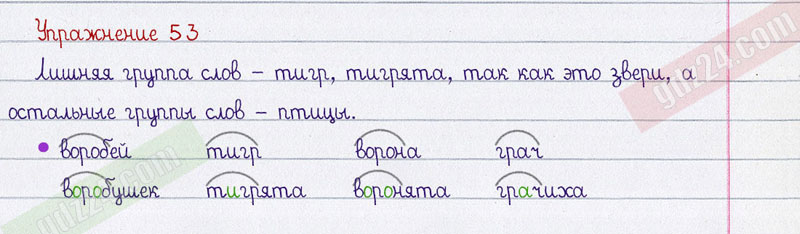 Упражнение 53
Лишняя группа слов – тигр, тигрята, так как это звери, а
остальные группы слов – птицы.
• воробей тигр ворона грач
воробушек тигрята воронята грачиха
gdz24.com
gdz24.com